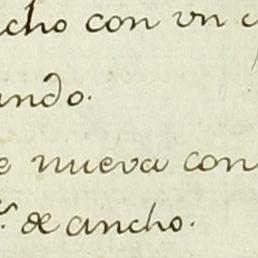 cho con vn
ando.
nueva con
de ancho.